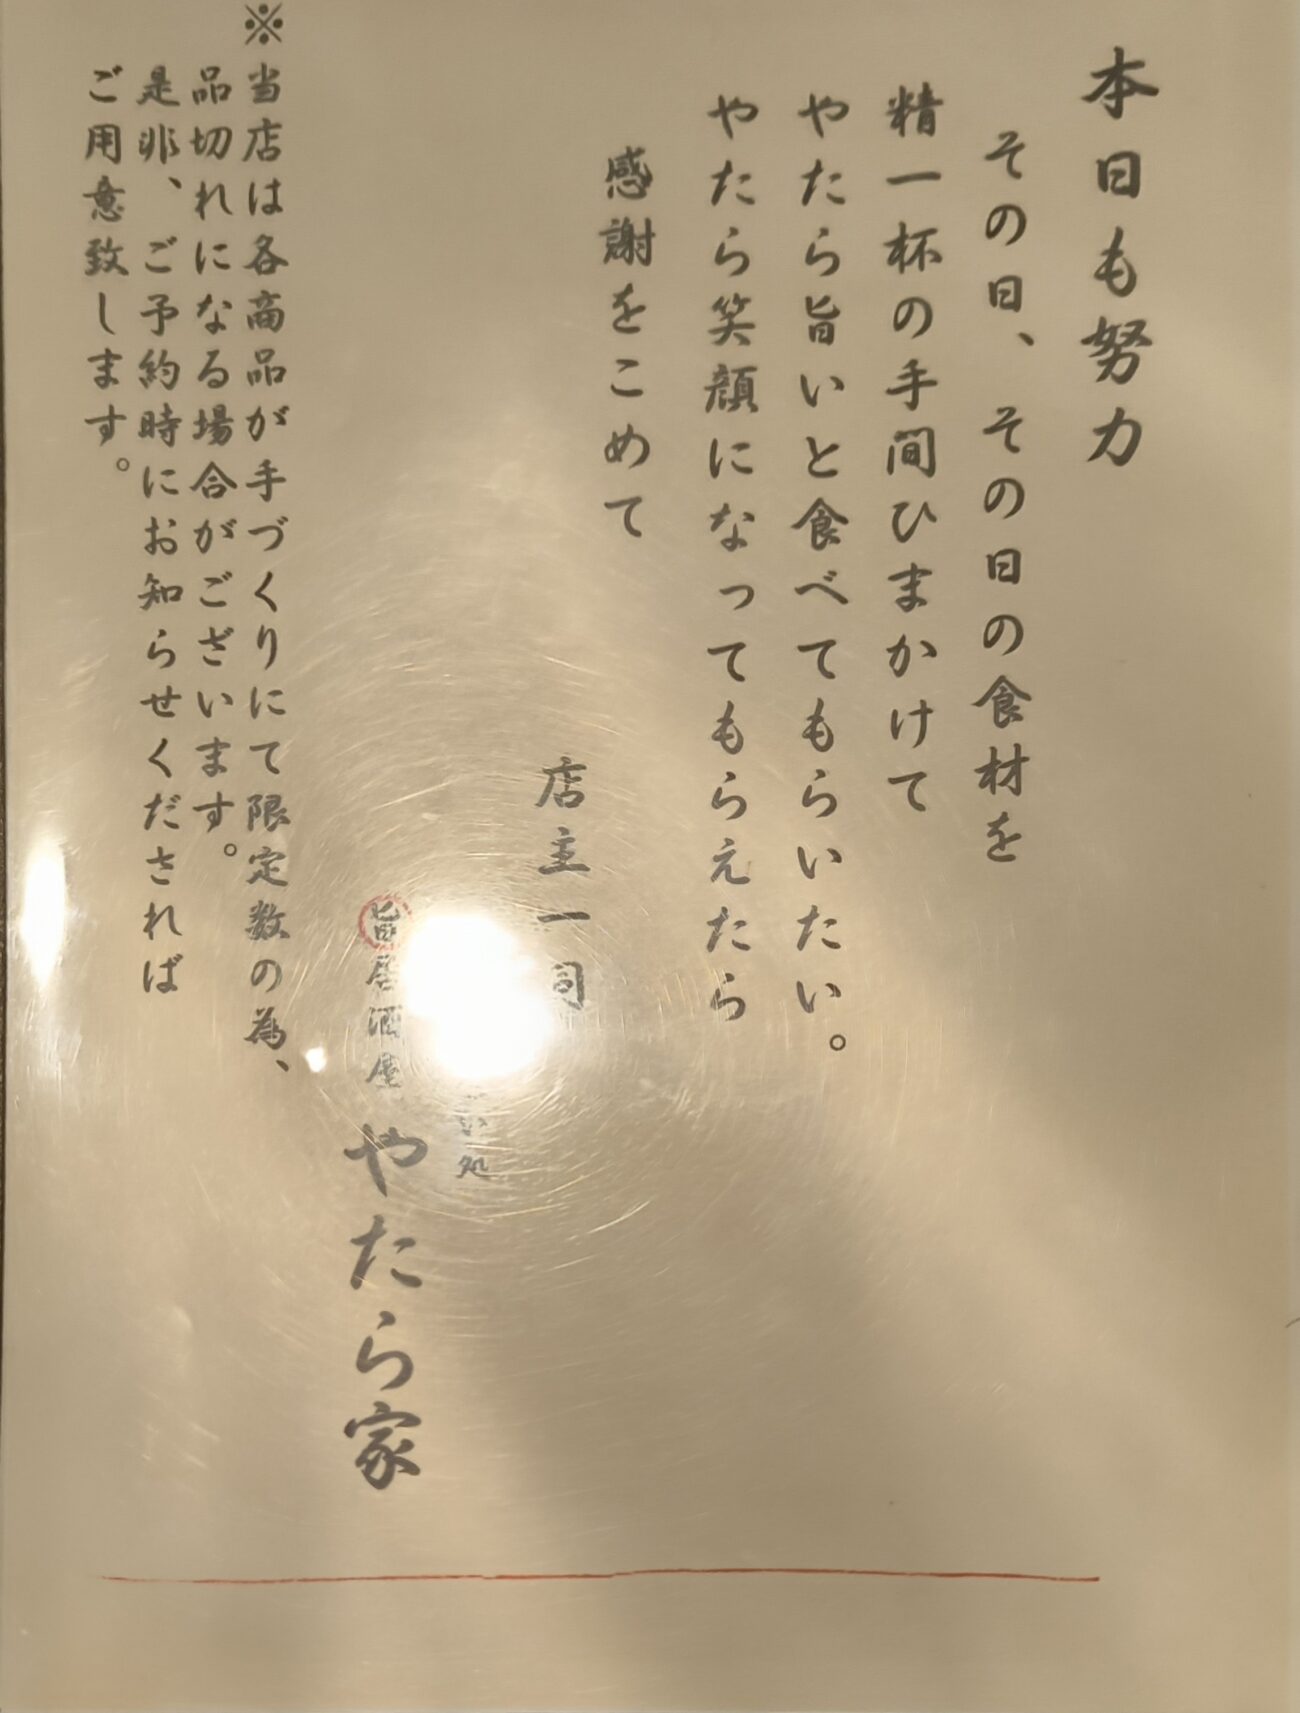 本日も努力
その日、その日の食材を
精一杯の手間ひまかけて
やたら旨いと食べてもらいたい。
やたら笑顔になってもらえたら
感謝をこめて
店主一同
い処
旨居酒屋 やたら家
※当店は各商品が手づくりにて限定数の為、
品切れになる場合がございます。
是非、ご予約時にお知らせくだされば
ご用意致します。